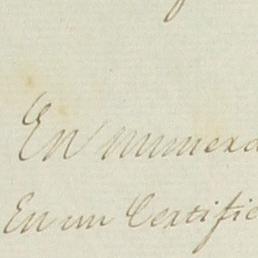 En numera
En un Certifie